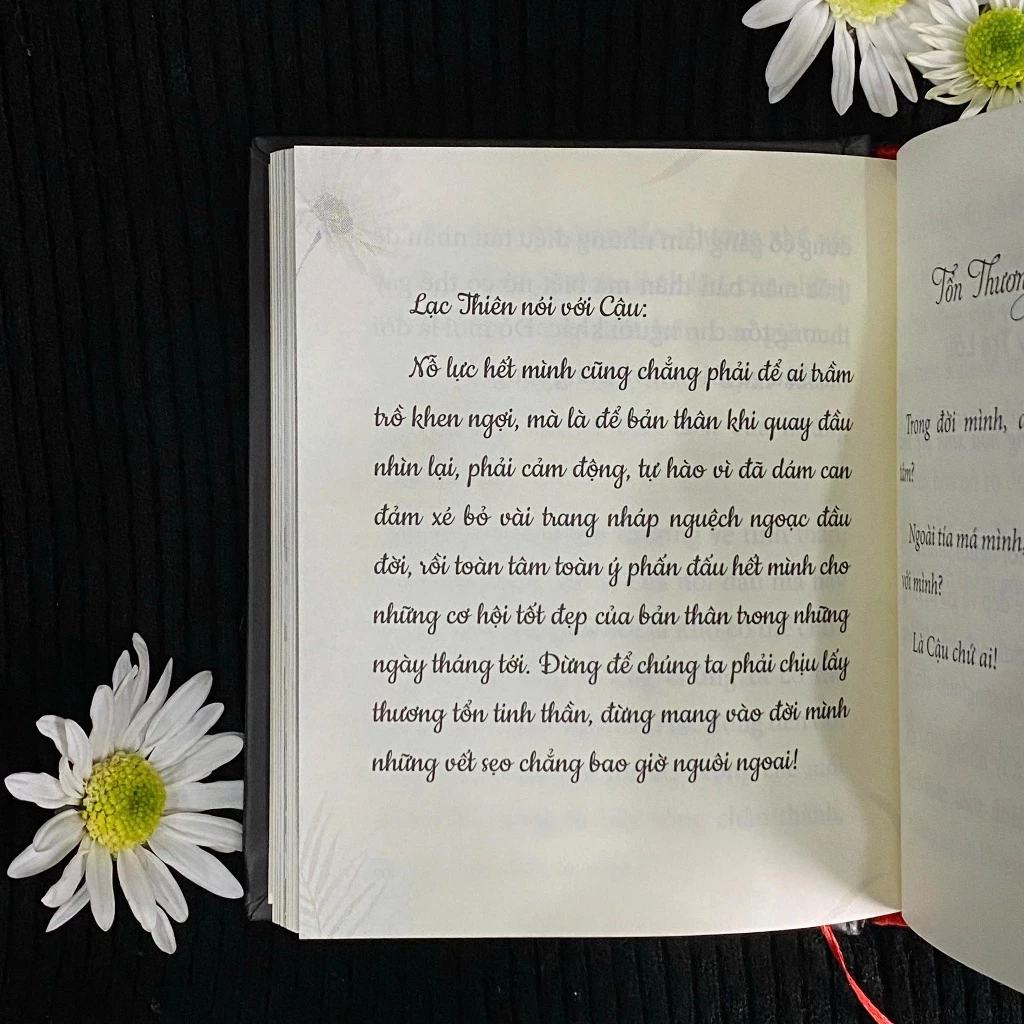 Lạc Thiên nói với Cậu:
Nỗ lực hết mình cũng chẳng phải để ai trầm
trồ khen ngợi, mà là để bản thân khi quay đầu
nhìn lại, phải cảm động, tự hào vì đã dám can
đảm xé bỏ vài trang nháp nguệch ngoạc đầu
đời, rồi toàn tâm toàn ý phấn đấu hết mình cho
những cơ hội tốt đẹp của bản thân trong những
ngày tháng tới. Đừng để chúng ta phải chịu lấy
thương tổn tinh thần, đừng mang vào đời mình
những vết sẹo chẳng bao giờ nguôi ngoai!
Tổn Thương
Trong đời mình,
Ngoài tía má mình,
với mình?
Là Cậu chứ ai!